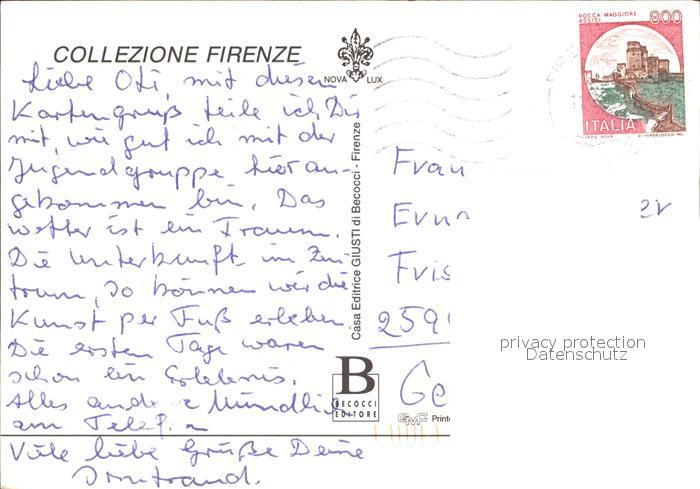 COLLEZIONE FIRENZE
NOVA LUX
ROCCA MAGGIORE
ASSISI
800
ITALIA
Liebe Oti, mit diesem
Kartengruß teile ich Dir
mit, wie gut ich mit der
Jugendgruppe hier an-
gekommen bin. Das
Wetter ist ein Traum.
Die Unterkunft im Zen-
trum, so können wir die
Kunst per Fuß erleben.
Die ersten Tage waren
schon ein Erlebnis.
Alles andere mündlich
am Telefon
Viele liebe Grüße Deine
Casa Editrice GIUSTI di Becocci - Firenze
B
BECOCCI
EDITORE
GMC Printe
Frau
Erna
Fris
259
Ge
privacy protection
Datenschutz